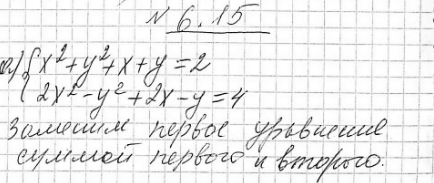 № 6.15
а) { x² + y² + x + y = 2
{ 2x² - y² + 2x - y = 4
Заменим первое уравнение
суммой первого и второго.